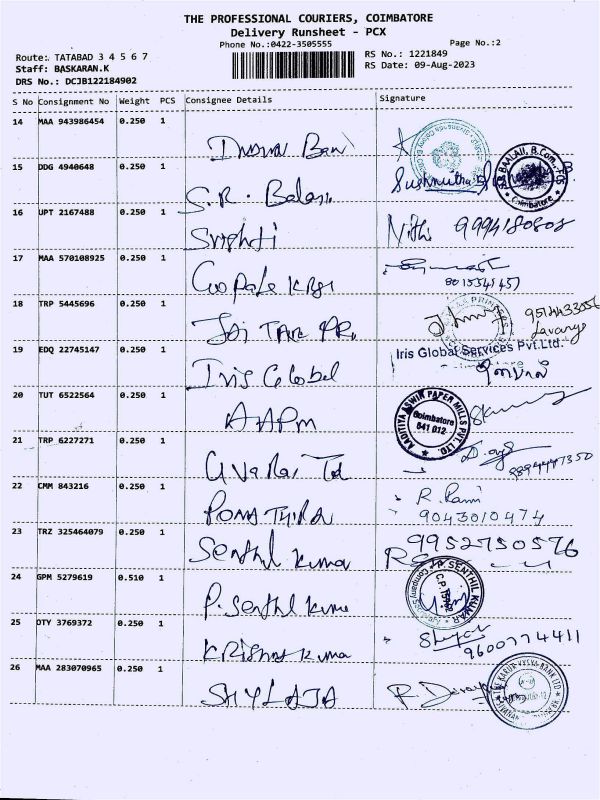 THE PROFESSIONAL COURIERS, COIMBATORE
Delivery Runsheet - PCX
Phone No.:0422-3505555
Page No.:2
Route: TATABAD 3 4 5 6 7
RS No.: 1221849
Staff: BASKARAN.K
RS Date: 09-Aug-2023
DRS No.: DCJB122184902
S No Consignment No Weight PCS Consignee Details Signature
14 MAA 943986454 0.250 1
15 DDG 4940648 0.250 1 S.R. Balaji
S.B BAALAJI, B.Com., FCS
Coimbatore
16 UPT 2167488 0.250 1 Srishti Nithi
17 MAA 570108925 0.250 1
18 TRP 5445696 0.250 1 Jai
Lavanya
19 EDQ 22745147 0.250 1 Iris Global
Iris Global Services Pvt.Ltd.
20 TUT 6522564 0.250 1 AAPM
AADITYA ASWIN PAPER MILLS PVT. LTD.
Coimbatore
641 012
21 TRP 6227271 0.250 1
22 CMM 843216 0.250 1 R. Rani
9043010474
23 TRZ 325464079 0.250 1 Senthil Kumar 9952750576
24 GPM 5279619 0.510 1 P. Senthil Kumar
P. SENTHIL KUMAR
25 OTY 3769372 0.250 1 Krishna Kumar
9600774411
26 MAA 283070965 0.250 1 SHYLAJA
THE KARUR VYSYA BANK LTD